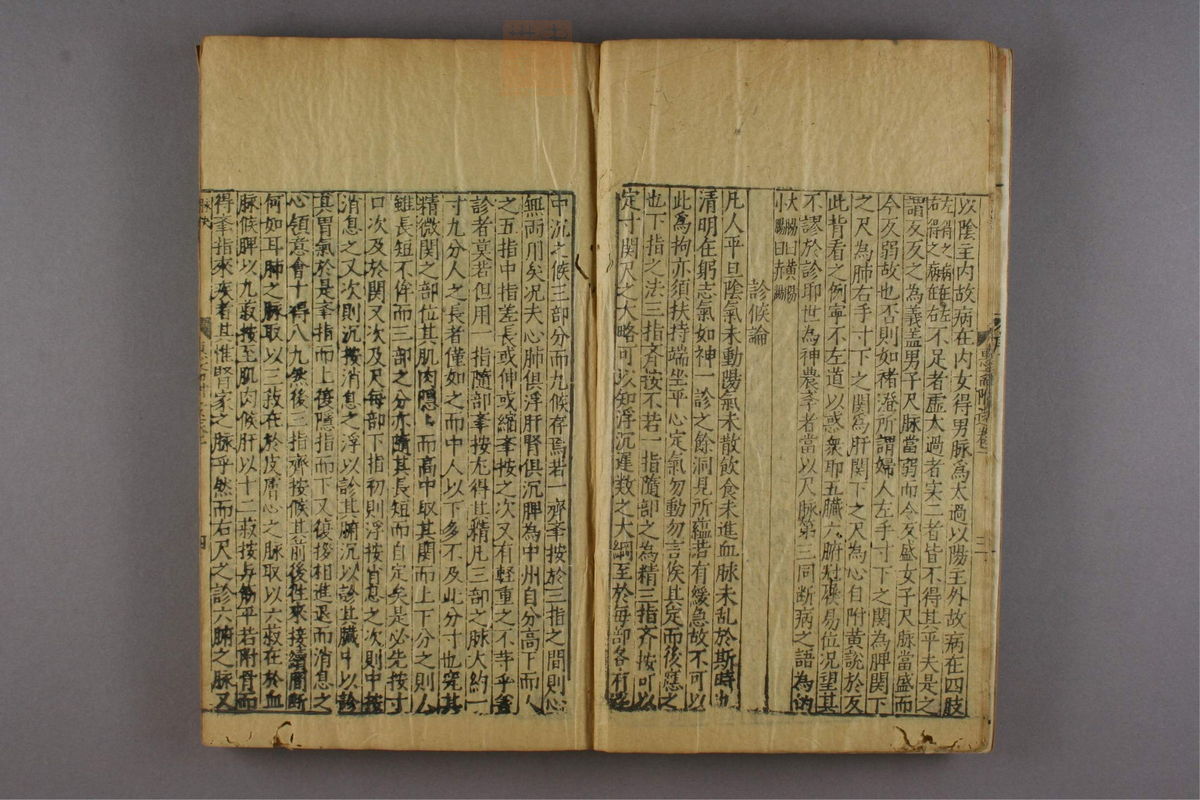 以陰主內故病在內女得男脉為太過以陽主外故病在四肢
左得之病在左
右得之病在右
不足者虛太過者実二者皆不得其平夫是之
謂反反之為義盖男子尺脉當弱而今反盛女子尺脉當盛而
今反弱故也否則如褚澄所謂婦人左手寸下之関為脾関下
之尺為肺右手寸下之関為肝関下之尺為心自附黃說於反
此背看之例寧不左道以惑衆耶五臟六腑
易位況望其
不謬於診耶世為神農孝者當以尺脉第三同断病之語為的
大腸曰黃腸
小腸曰赤腸
診候論
凡人平旦陰氣未動陽氣未散飲食未進血脉未乱於斯時也
清明在躬志氣如神一診之餘洞見所蘊若有緩急故不可以
此為拘亦須扶持端坐平心定氣勿動勿言俟其定而後應之
也下指之法三指齐按不若一指隨部之為精三指齐按可以
定寸関尺之大略可以知浮沉遲数之大綱至於每部各有浮
中沉之候三部分而九候存焉若一齊举按於三指之間則心
無兩用矣况夫心肺俱浮肝腎俱沉脾為中州自分高下而人
之五指中指差長或伸或縮举按之次又有軽重之不等乎
診者莫若但用一指隨部举按尤得其精凡三部之脉大約一
寸九分人之長者僅如之而中人以下多不及此分寸也究其
精微関之部位其肌肉隱〻而高中取其関而上下分之則人
雖長短不侔而三部之分亦隨其長短而自定矣是必先按寸
口次及於関又次及尺每部下指初則浮按消息之次則中按
消息之又次則沉按消息之浮以診其腑沉以診其臟中以診
其胃氣於是举指而上復隱指而下又復後相進退而消息之
心領意會十得八九然後三指齊按候其前後往來接續間断
何如耳肺之脉取以三菽在於皮膚心之脉取以六菽在於血
脉候脾以九菽按至肌肉候肝以十二菽按与筋平若附骨而
得举指來疾者其惟腎家之脉乎然而右尺之診六腑之脉又